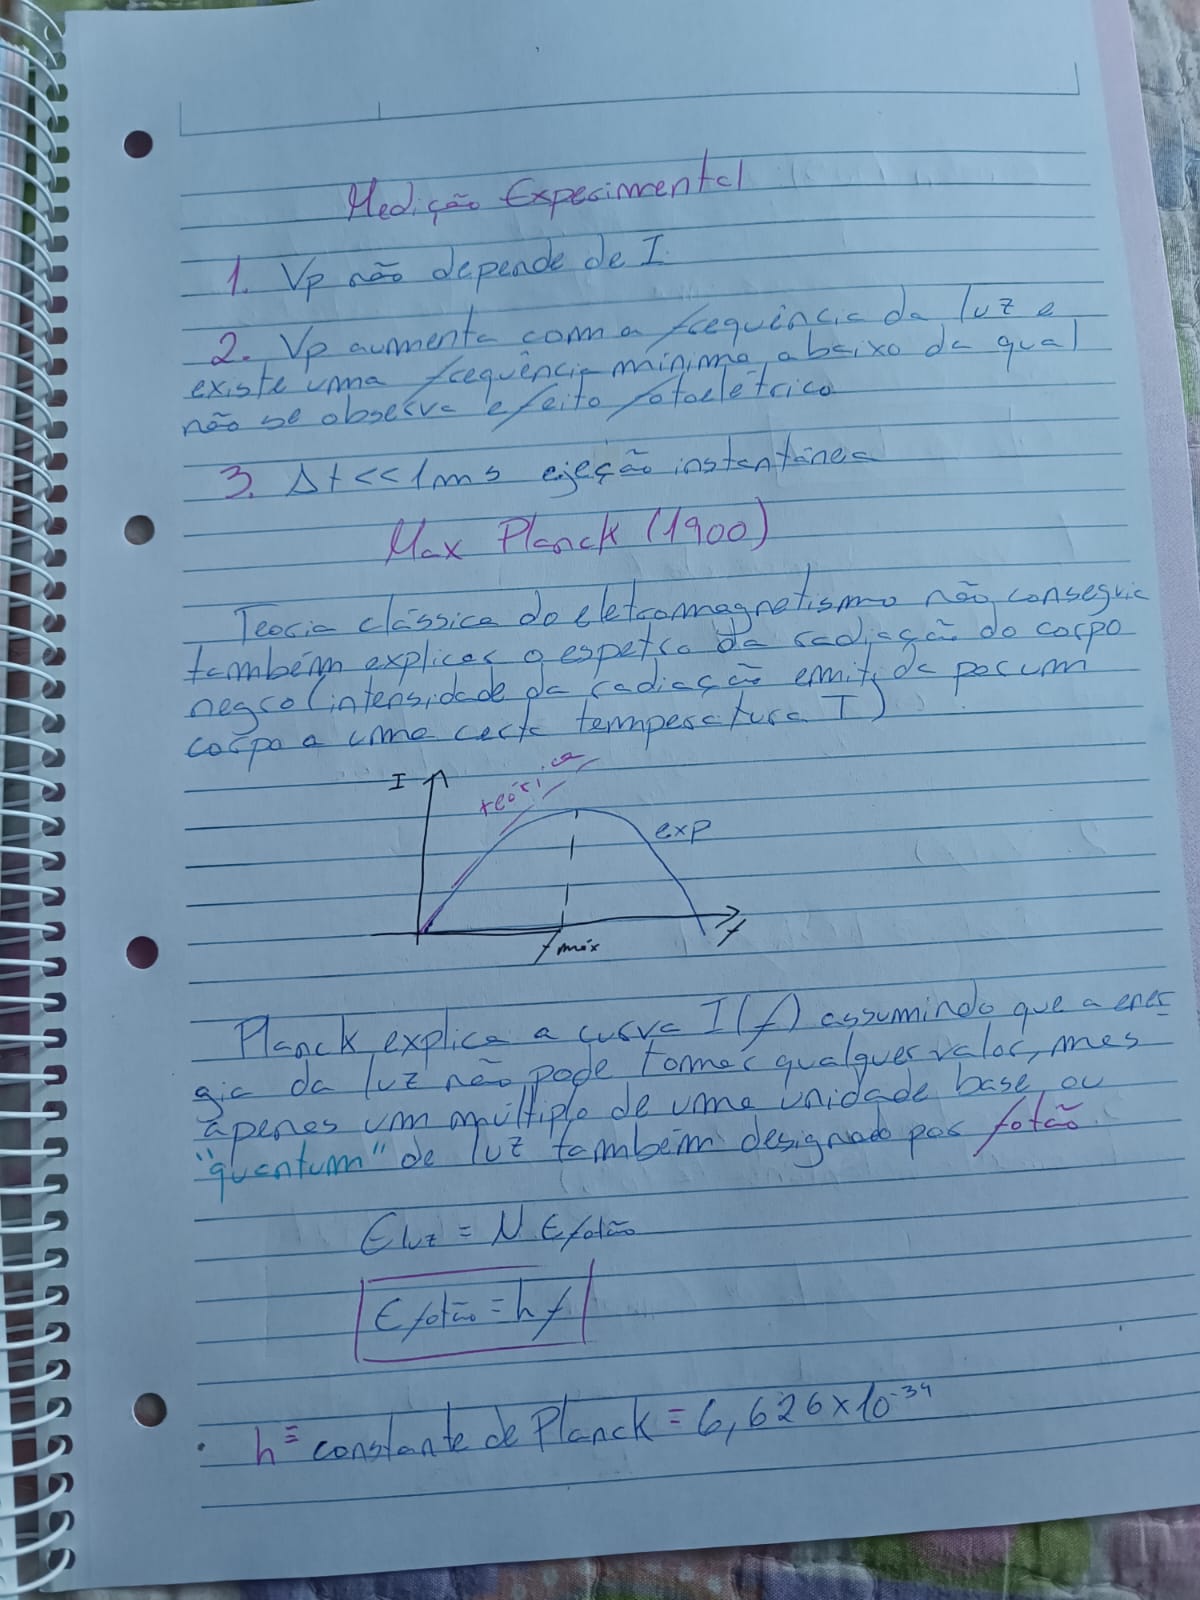 Medição Experimental
1. Vp não depende de I
2. Vp aumenta com a frequência da luz e
existe uma frequência mínima, abaixo da qual
não se observa efeito fotoelétrico
3. Δt<<1ms ejeção instantânea
Max Planck (1900)
Teoria clássica do eletromagnetismo não conseguia
também explicar o espetro da radiação do corpo
negro (intensidade da radiação emitida por um
corpo a uma certa temperatura T)
I
teórica
exp
f máx
f
Planck explica a curva I(f) assumindo que a ener-
gia da luz não pode tomar qualquer valor, mas
apenas um múltiplo de uma unidade base, ou
"quantum" de luz também designado por fotão.
E luz = N E fotão
E fotão = h f
h ≡ constante de Planck = 6,626 x 10^-34